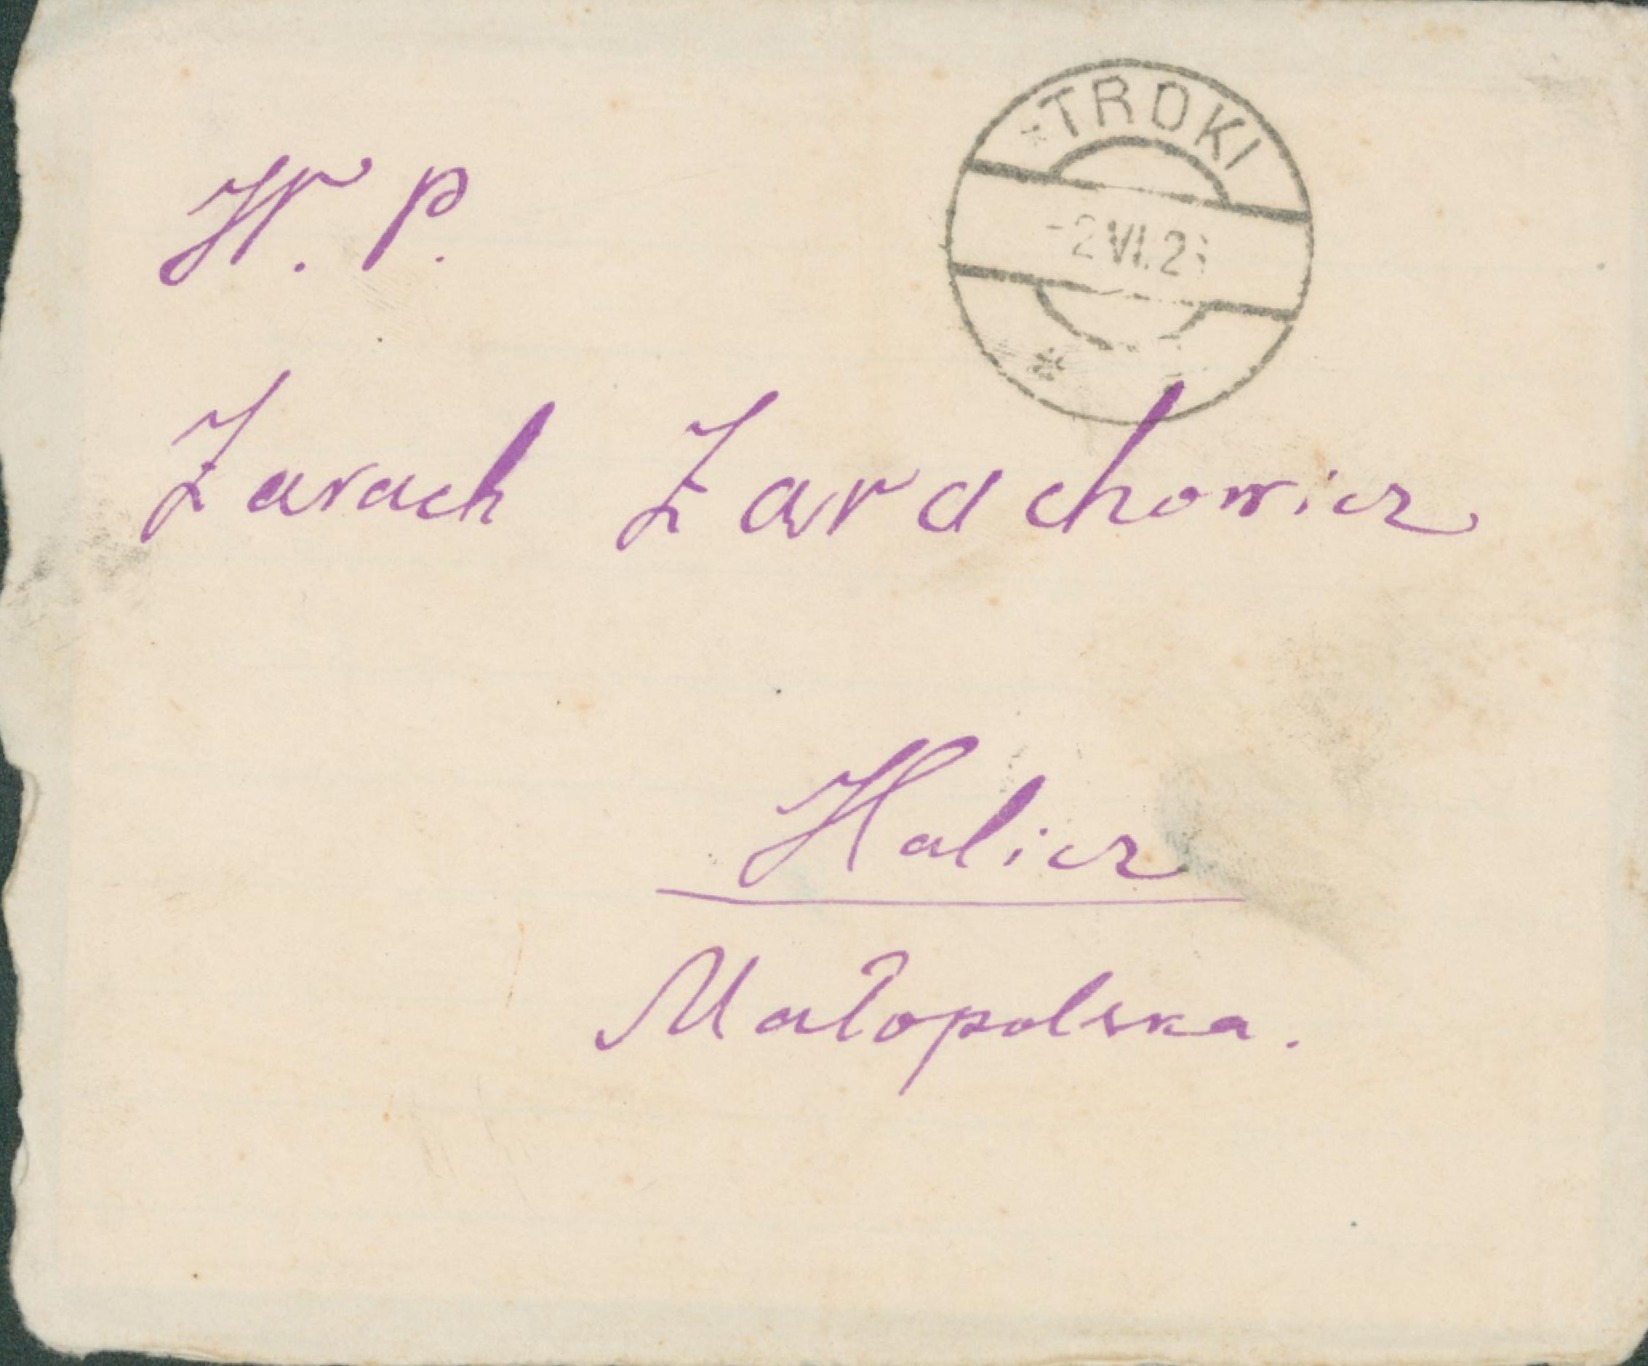 TROKI
-2 VI. 2
W. P.
Zarach Zarachowicz
Halicz
Małopolska.